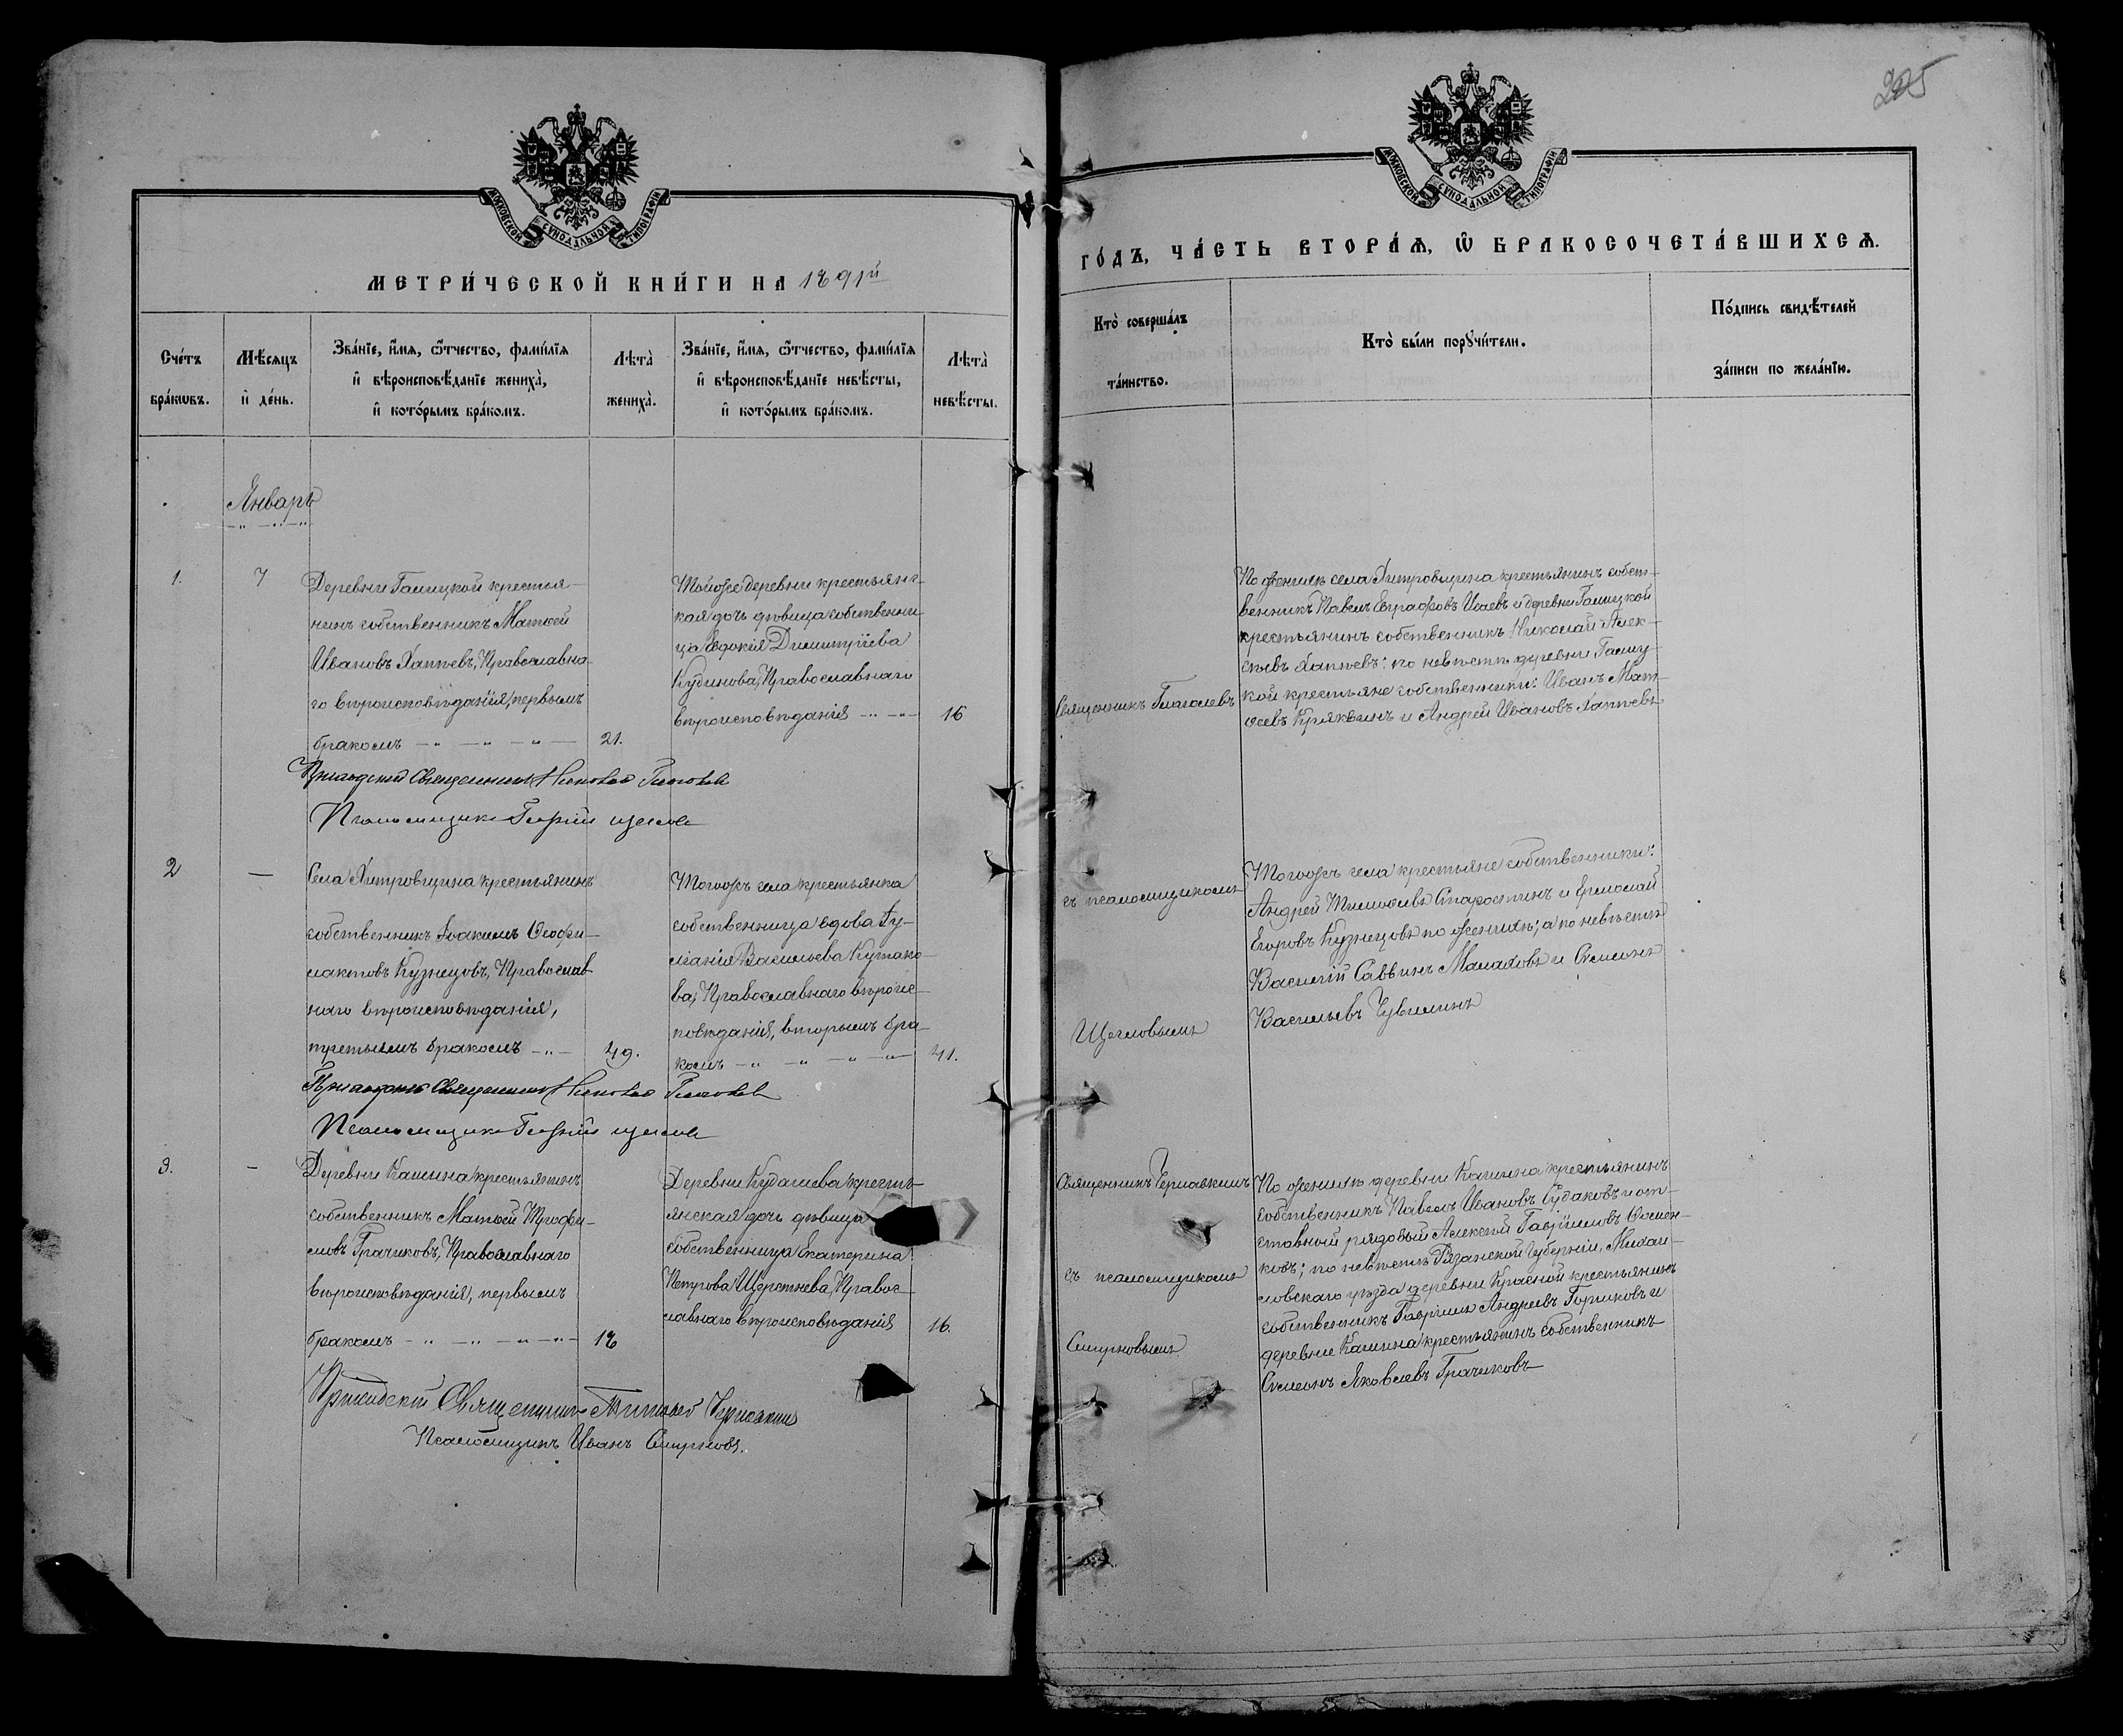 МОСКОВСКОЙ СѴНОДАЛЬНОЙ ТИПОГРАФІИ
МЕТРИ́ЧЕСКОЙ КНИ́ГИ НА 1891й
Сче́тъ бра́кѡвъ.
Мѣ́сяцъ и҆ де́нь.
Зва́нїе, и҆́мя, ѻ҆́тчество, фами́лїя
и҆ вѣроисповѣ́данїе жениха̀,
и҆ кото́рымъ бра́комъ.
Лѣта̀ жениха̀.
Зва́нїе, и҆́мя, ѻ҆́тчество, фами́лїя
и҆ вѣроисповѣ́данїе невѣ́сты,
и҆ кото́рымъ бра́комъ.
Лѣта̀ невѣ́сты.
Январь
1.
7
Деревни Галицкой крестья-
нинъ собственникъ Матѳей
Ивановъ Лаптевъ, Православна-
го вѣроисповѣданія, первымъ
бракомъ
21.
Тойже деревни крестьянс-
кая дочь дѣвица собственни-
ца Евдокія Димитріева
Кудинова, Православнаго
вѣроисповѣданія
16
Приходскій Священникъ Николай Глаголевъ
Псаломщикъ Георгій Щегловъ
2
—
Села Хитровщина крестьянинъ
собственникъ Іоакимъ Ѳеофи-
лактовъ Кузнецовъ, Православ-
наго вѣроисповѣданія,
третьимъ бракомъ
49.
Тогожъ села крестьянка
собственница вдова Іу-
ліанія Васильева Кутако-
ва, Православнаго вѣроис-
повѣданія, вторымъ бра-
комъ
41.
Приходскій Священникъ Николай Глаголевъ
Псаломщикъ Георгій Щегловъ
3.
—
Деревни Кашина крестьянинъ
собственникъ Матѳей Трофи-
мовъ Грачиковъ, Православнаго
вѣроисповѣданія, первымъ
бракомъ
18
Деревни Кудашева кресть-
янская дочь дѣвица
собственница Екатерина
Петрова Шерстнева, Правос-
лавнаго вѣроисповѣданія
16.
Приходскій Священникъ Тимоѳей Чернавкинъ
Псаломщикъ Иванъ Смирновъ.
225
МОСКОВСКОЙ СѴНОДАЛЬНОЙ ТИПОГРАФІИ
ГО́ДЪ, ЧА́СТЬ ВТОРА́Ѧ, Ѽ БРАКОСОЧЕТА́ВШИХСѦ.
Кто̀ соверша́лъ та́инство.
Кто̀ бы́ли порꙋчи́тели.
По́дпись свидѣ́телей
за́писи по жела́нїю.
Священникъ Глаголевъ
съ псаломщикомъ
Щегловымъ
По женихѣ села Хитровщина крестьянинъ собст-
венникъ Павелъ Евграфовъ Исаевъ и деревни Галицкой
крестьянинъ собственникъ Николай Алек-
сѣевъ Лаптевъ: по невѣстѣ деревни Галиц-
кой крестьяне собственники: Иванъ Мат-
ѳеевъ Куляквинъ и Андрей Ивановъ Лаптевъ
Тогожъ села крестьяне собственники:
Андрей Тимоѳеевъ Старостинъ и Ермолай
Егоровъ Кузнецовъ по женихѣ; а по невѣстѣ
Василій Саввинъ Малаховъ и Симеонъ
Васильевъ Чувилинъ
Священникъ Чернавкинъ
съ псаломщикомъ
Смирновымъ
По женихѣ деревни Кашина крестьянинъ
собственникъ Павелъ Ивановъ Судаковъ и от-
ставной рядовой Алексѣй Гавріиловъ
ковъ; по невѣстѣ Рязанской Губерніи, Михай-
ловскаго уѣзда деревни Красной крестьянинъ
собственникъ Гавріилъ Андреевъ Горшковъ и
деревни Кашина крестьянинъ собственникъ
Симеонъ Яковлевъ Грачиковъ